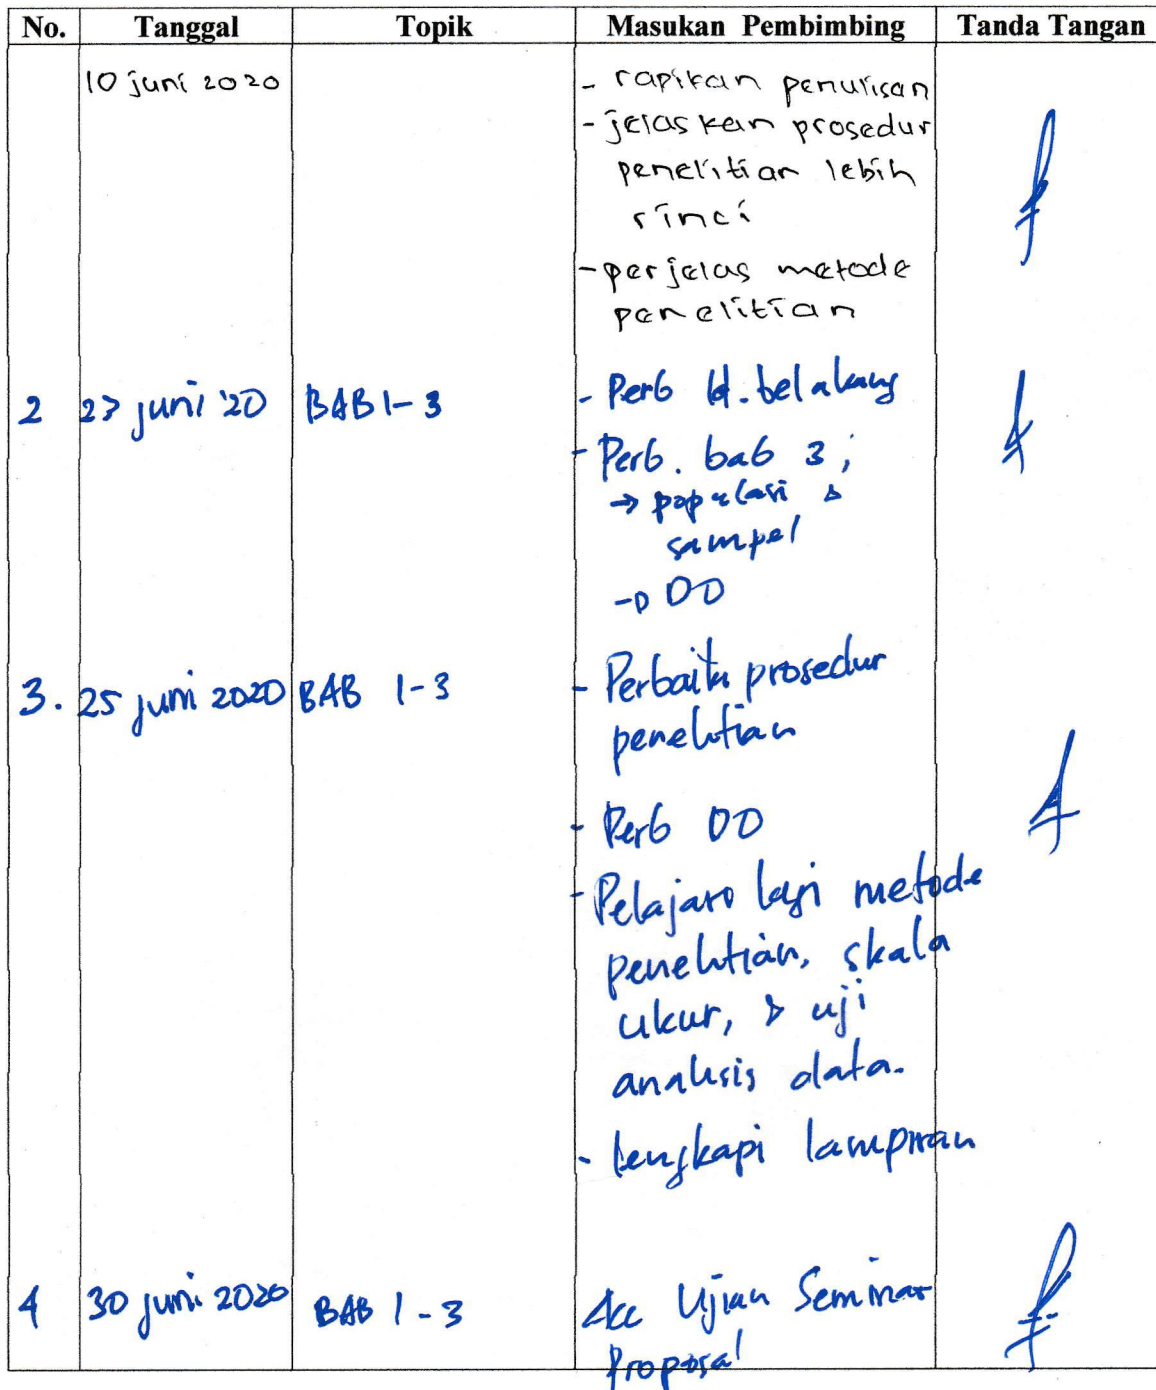 No. Tanggal Topik Masukan Pembimbing Tanda Tangan
10 juni 2020 - rapikan penulisan
- jelaskan prosedur
penelitian lebih
rinci
- perjelas metode
penelitian
2 23 juni '20 BAB 1-3 - Perb lt. belakang
- Perb. bab 3;
→ populasi &
sampel
→ DO
3. 25 juni 2020 BAB 1-3 - Perbaiki prosedur
penelitian
- Perb DO
- Pelajari lagi metode
penelitian, skala
ukur, & uji
analisis data.
- lengkapi lampiran
4 30 juni 2020 BAB 1-3 Acc Ujian Seminar
Proposal